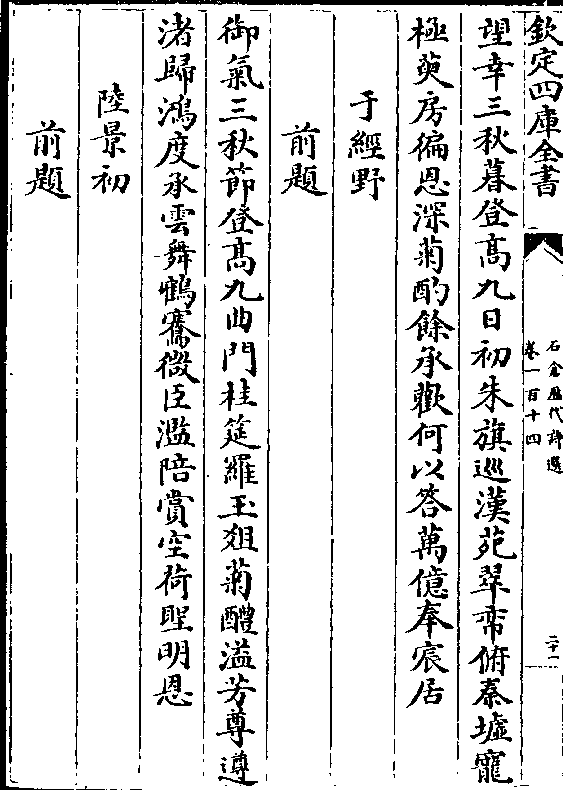 欽定四庫全書
石倉歷代詩選
卷一百十四
二十一
望幸三秋暮登髙九日初朱旗巡漢苑翠帟俯秦墟寵
極萸房徧恩深菊酌餘承歡何以答萬億奉宸居
于經野
前題
御氣三秋節登髙九曲門桂筵羅玉俎菊醴溢芳尊遵
渚歸鴻度承雲舞鶴騫微臣濫陪賞空荷聖明恩
陸景初
前題